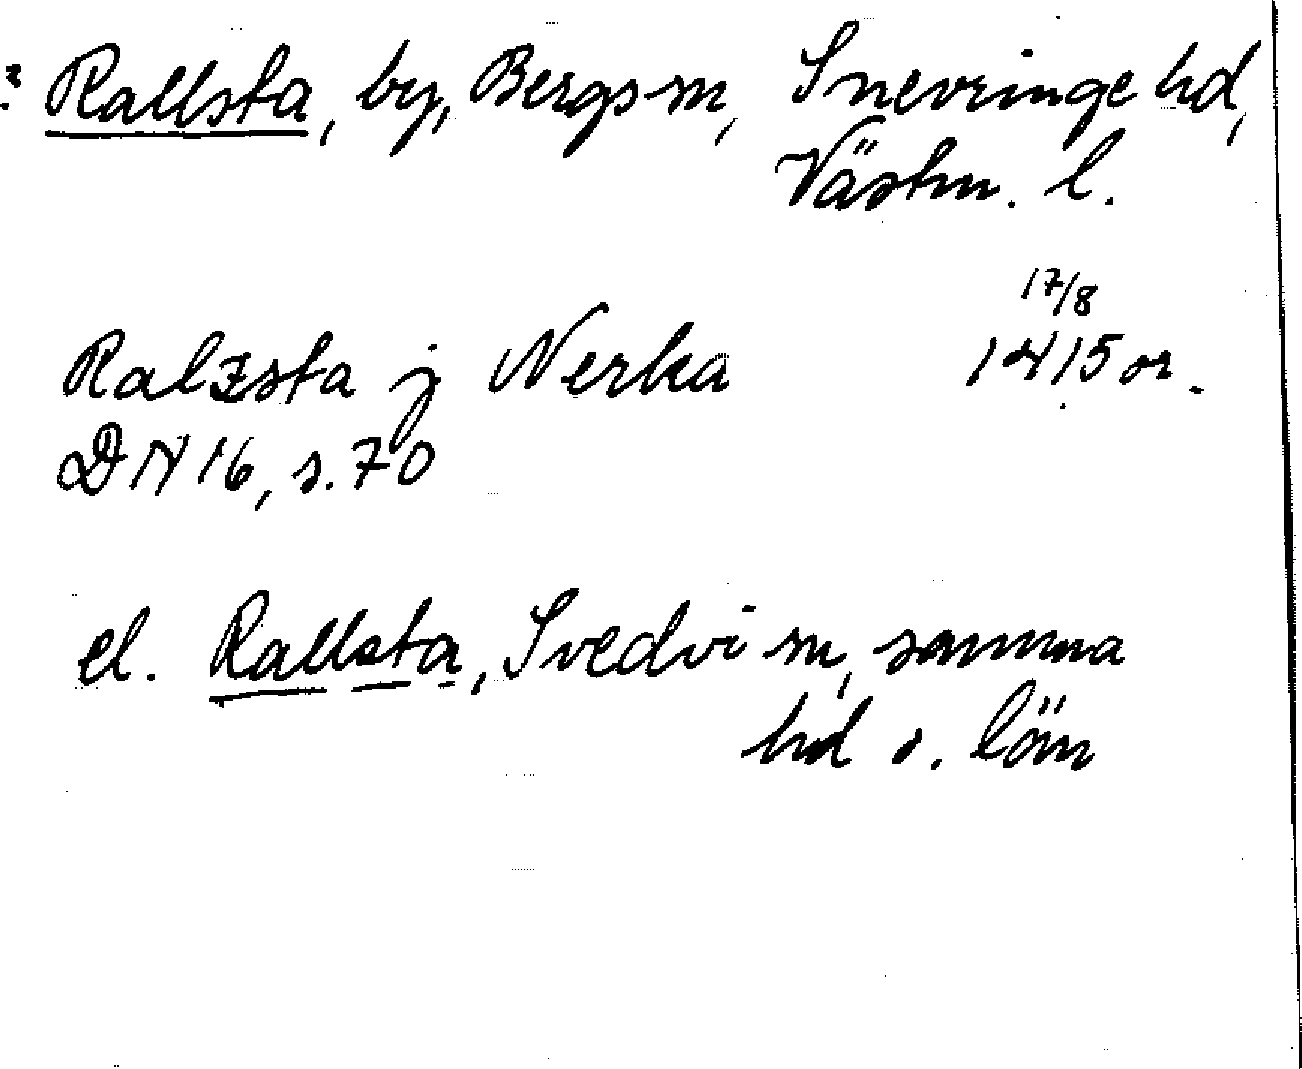 : Rallsta, by, Bergs sn, Snevringe hd,
Västm. l.
17/8
Ralzsta j Nerka 1415 or.
DN 16, s. 70
el. Rallsta, Svedvi sn, samma
hd o. län